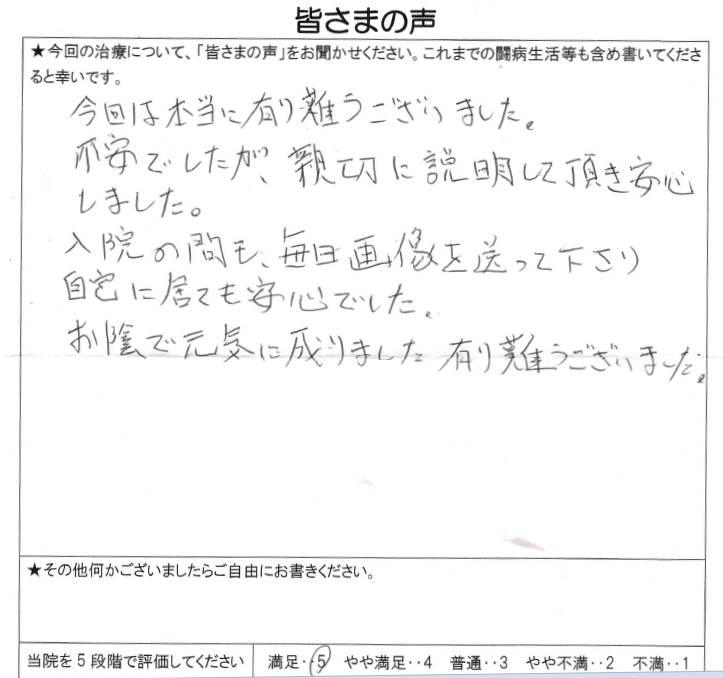 皆さまの声
★今回の治療について、「皆さまの声」をお聞かせください。これまでの闘病生活等も含め書いてくださ
ると幸いです。
今回は本当に有り難うございました。
不安でしたが、親切に説明して頂き安心
しました。
入院の間も、毎日画像を送って下さり
自宅に居ても安心でした。
お陰で元気に成りました 有り難うございました。
★その他何かございましたらご自由にお書きください。
当院を5段階で評価してください 満足‥5 やや満足‥4 普通‥3 やや不満‥2 不満‥1